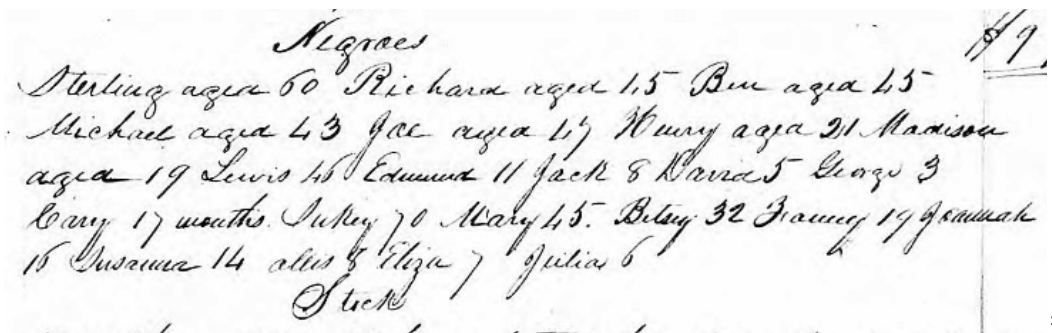 Negroes
Sterling aged 60 Richard aged 45 Ben aged 45
Michael aged 43 Joe aged 47 Henry aged 21 Madison
aged 19 Lewis 46 Edmund 11 Jack 8 David 5 George 3
Cary 17 months. Sukey 70 Mary 45. Betsey 32 Franney 19 Joannah
16 Susanna 14 allis 8 Eliza 7 Julia 6
Stock